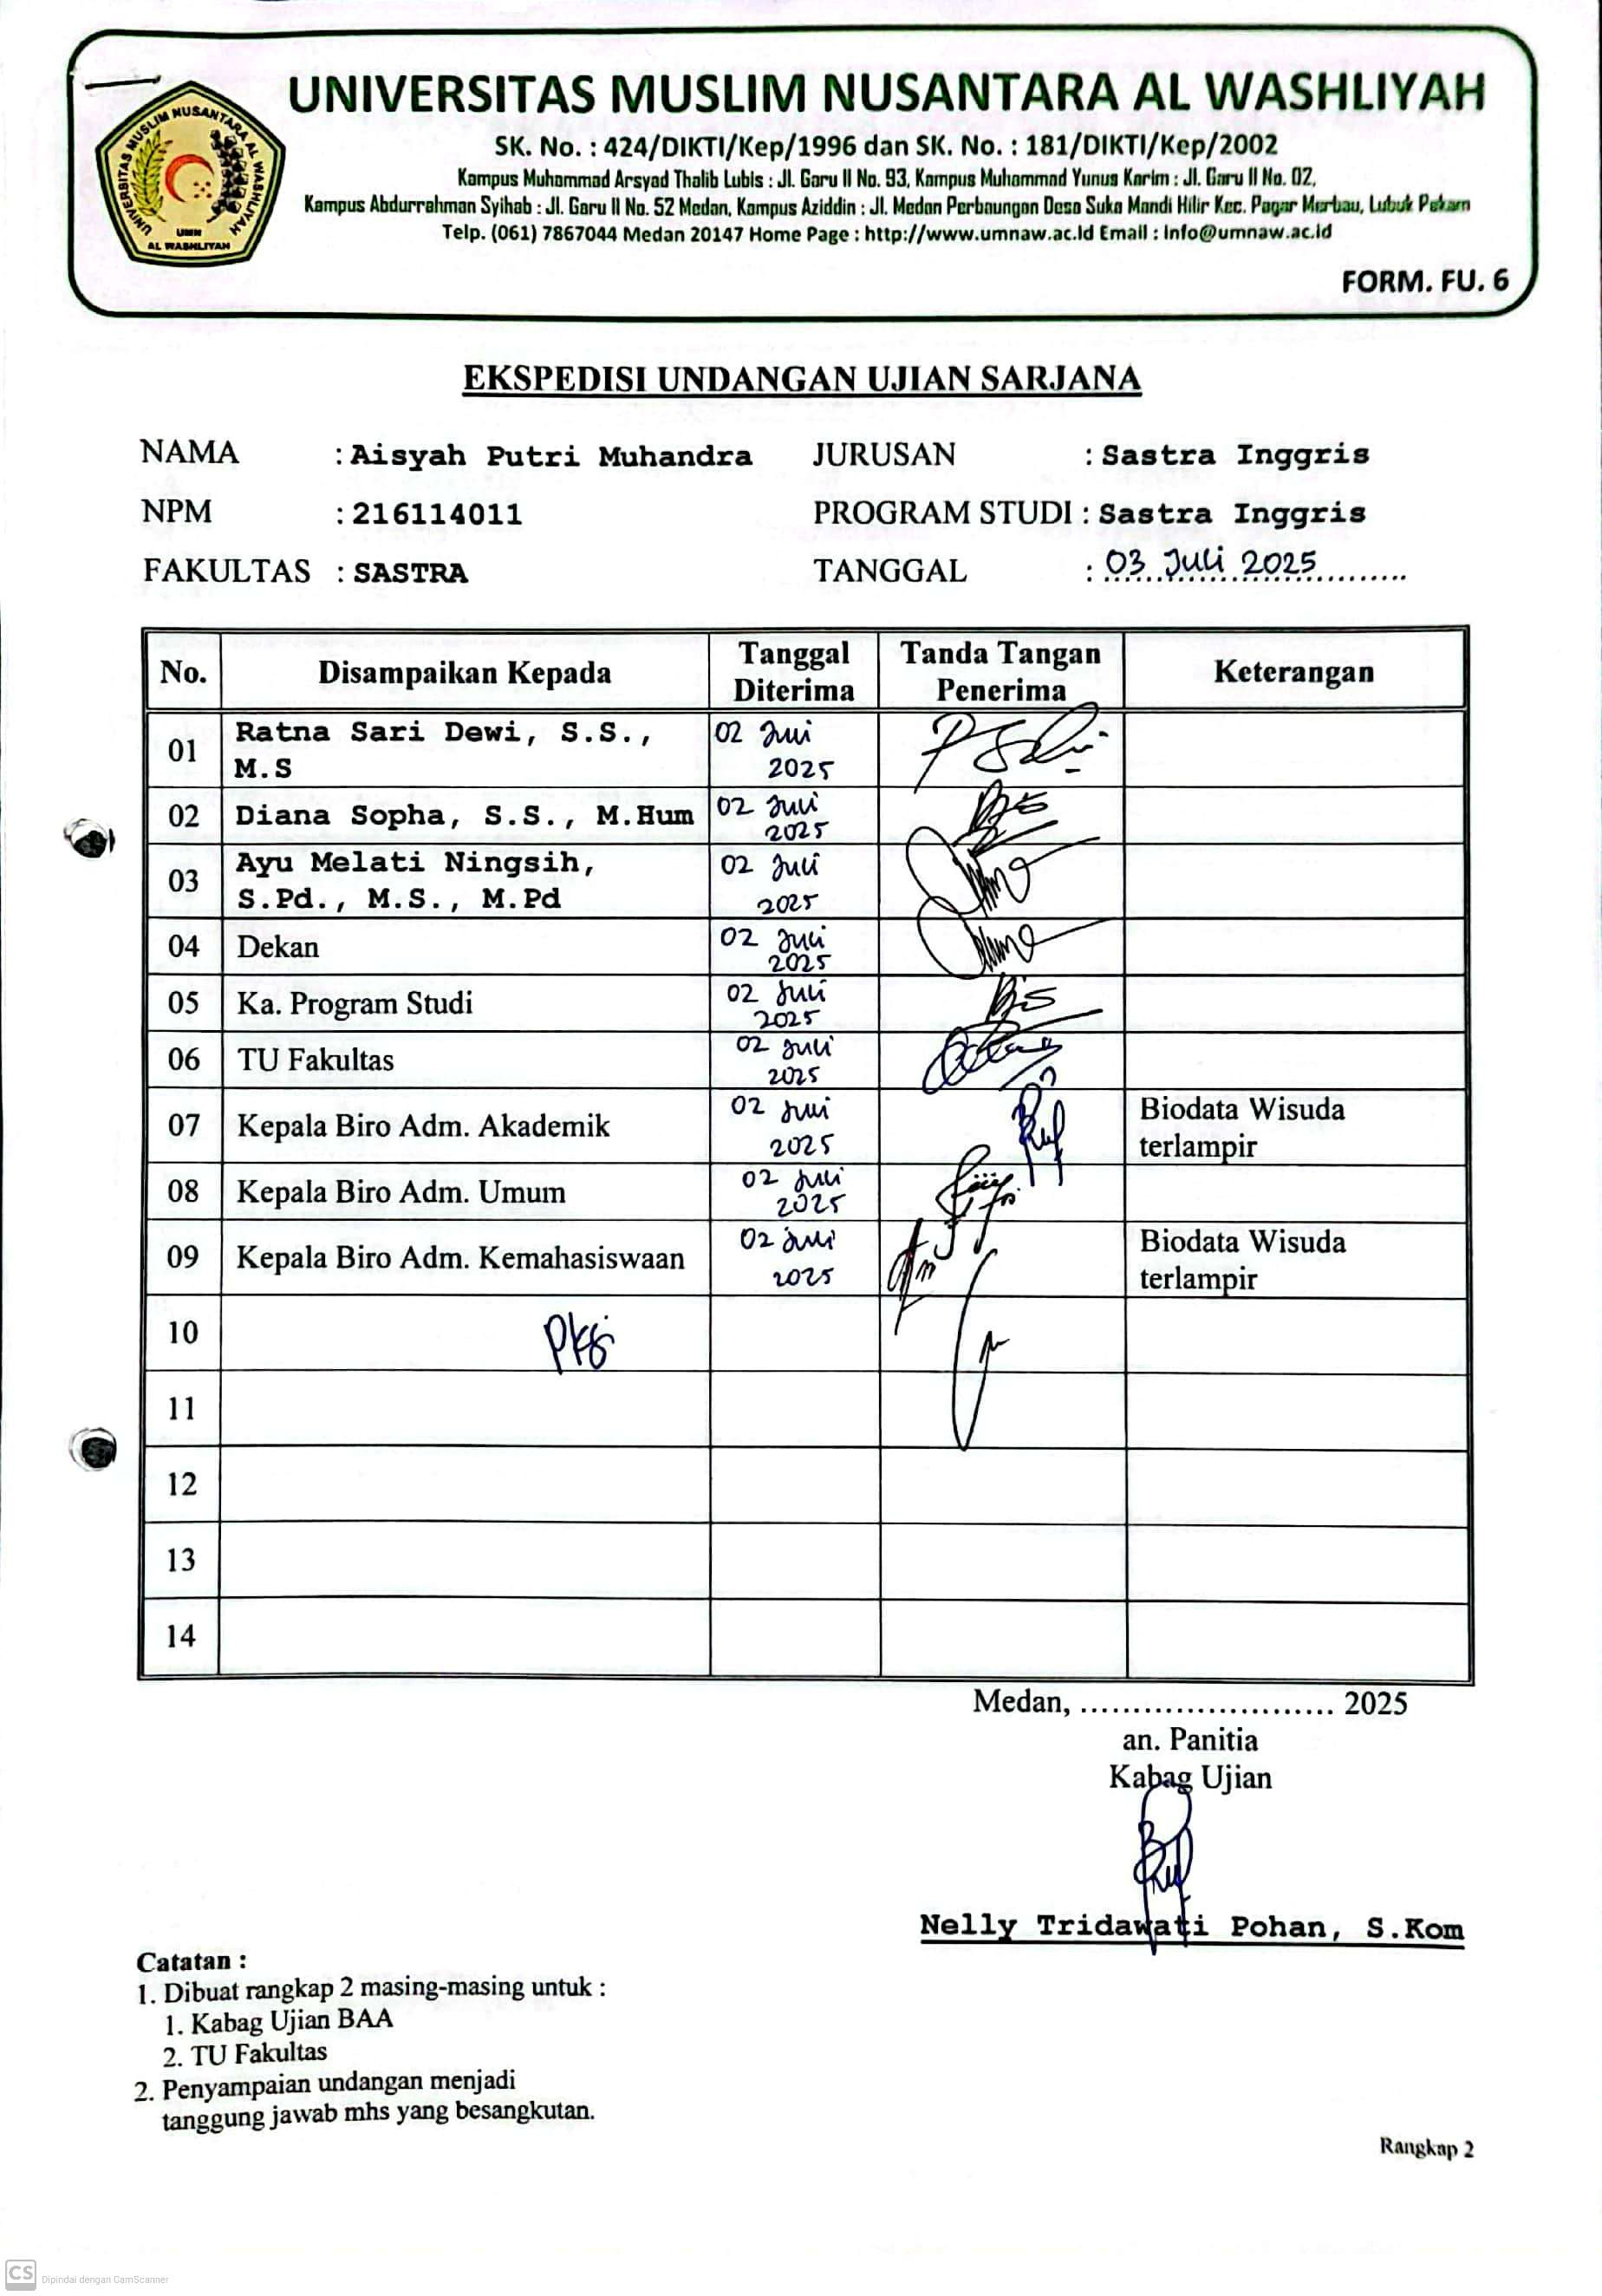 UNIVERSITAS MUSLIM NUSANTARA AL WASHLIYAH
SK. No. : 424/DIKTI/Kep/1996 dan SK. No. : 181/DIKTI/Kep/2002
Kampus Muhammad Arsyad Thalib Lubis : Jl. Garu II No. 93, Kampus Muhammad Yunus Karim : Jl. Garu II No. 02,
Kampus Abdurrahman Syihab : Jl. Garu II No. 52 Medan, Kampus Aziddin : Jl. Medan Perbaungan Desa Suka Mandi Hilir Kec. Pagar Merbau, Lubuk Pakam
Telp. (061) 7867044 Medan 20147 Home Page : http://www.umnaw.ac.id Email : info@umnaw.ac.id
UNIVERSITAS MUSLIM NUSANTARA AL WASHLIYAH
UMN
AL WASHLIYAH
FORM. FU. 6
EKSPEDISI UNDANGAN UJIAN SARJANA
NAMA : Aisyah Putri Muhandra JURUSAN : Sastra Inggris
NPM : 216114011 PROGRAM STUDI : Sastra Inggris
FAKULTAS : SASTRA TANGGAL : 03 Juli 2025
No. Disampaikan Kepada Tanggal Diterima Tanda Tangan Penerima Keterangan
01 Ratna Sari Dewi, S.S., M.S 02 Juli 2025
02 Diana Sopha, S.S., M.Hum 02 Juli 2025
03 Ayu Melati Ningsih, S.Pd., M.S., M.Pd 02 Juli 2025
04 Dekan 02 Juli 2025
05 Ka. Program Studi 02 Juli 2025
06 TU Fakultas 02 Juli 2025
07 Kepala Biro Adm. Akademik 02 Juli 2025 Biodata Wisuda terlampir
08 Kepala Biro Adm. Umum 02 Juli 2025
09 Kepala Biro Adm. Kemahasiswaan 02 Juli 2025 Biodata Wisuda terlampir
10
11
12
13
14
Medan, ........................ 2025
an. Panitia
Kabag Ujian
Nelly Tridawati Pohan, S.Kom
Catatan :
1. Dibuat rangkap 2 masing-masing untuk :
1. Kabag Ujian BAA
2. TU Fakultas
2. Penyampaian undangan menjadi
tanggung jawab mhs yang besangkutan.
Rangkap 2
CS Dipindai dengan CamScanner